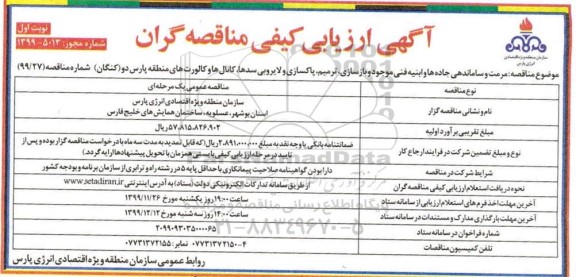 آگهی ارزیابی کیفی مناقصه گران
نوبت اول
شماره مجوز: ۱۳۹۹-۵۰۱۳
سازمان منطقه ویژه اقتصادی
انرژی پارس
موضوع مناقصه: مرمت و ساماندهی جاده‌ها و ابنیه فنی موجود و بازسازی، ترمیم، پاکسازی و لایروبی سدها، کانال‌ها و کالورت‌های منطقه پارس دو (کنگان) شماره مناقصه (۹۹/۲۷)
نوع مناقصه
مناقصه عمومی یک مرحله‌ای
نام و نشانی مناقصه گزار
سازمان منطقه ویژه اقتصادی انرژی پارس
استان بوشهر، عسلویه، ساختمان همایش های خلیج فارس
مبلغ تقریبی برآورد اولیه
۵۷،۸۱۵،۸۲۶،۹۰۲ ریال
نوع و مبلغ تضمین شرکت در فرایند ارجاع کار
ضمانتنامه بانکی یا وجه نقد به مبلغ ۲،۸۹۱،۰۰۰،۰۰۰ ریال (که قابل تمدید به مدت سه ماه با درخواست مناقصه گزار بوده و پس از تایید در مرحله ارزیابی کیفی بایستی همزمان با تحویل پیشنهادها ارایه گردد)
شرایط شرکت در مناقصه
دارا بودن گواهینامه صلاحیت پیمانکاری با حداقل پایه ۵ در رشته راه و ترابری از سازمان برنامه و بودجه کشور
نحوه دریافت استعلام ارزیابی کیفی مناقصه گران
از طریق سامانه تدارکات الکترونیکی دولت (ستاد) به آدرس اینترنتی www.setadiran.ir
آخرین مهلت اخذ فرم های استعلام ارزیابی از سامانه ستاد
ساعت ۱۹:۰۰ روز یکشنبه مورخ ۱۳۹۹/۱۱/۲۶
آخرین مهلت بارگذاری مدارک و مستندات در سامانه ستاد
ساعت ۱۴:۰۰ روز سه شنبه مورخ ۱۳۹۹/۱۲/۱۲
شماره فراخوان در سامانه ستاد
۲۰۹۹۰۹۳۰۳۵۰۰۰۰۶۵
تلفن کمیسیون مناقصات
۰۷۷۳۱۳۷۲۱۵۰-۴ نمابر: ۰۷۷۳۱۳۷۲۱۵۵
۰۲۱-۸۸۳۴۹۶۷۰-۵
روابط عمومی سازمان منطقه ویژه اقتصادی انرژی پارس